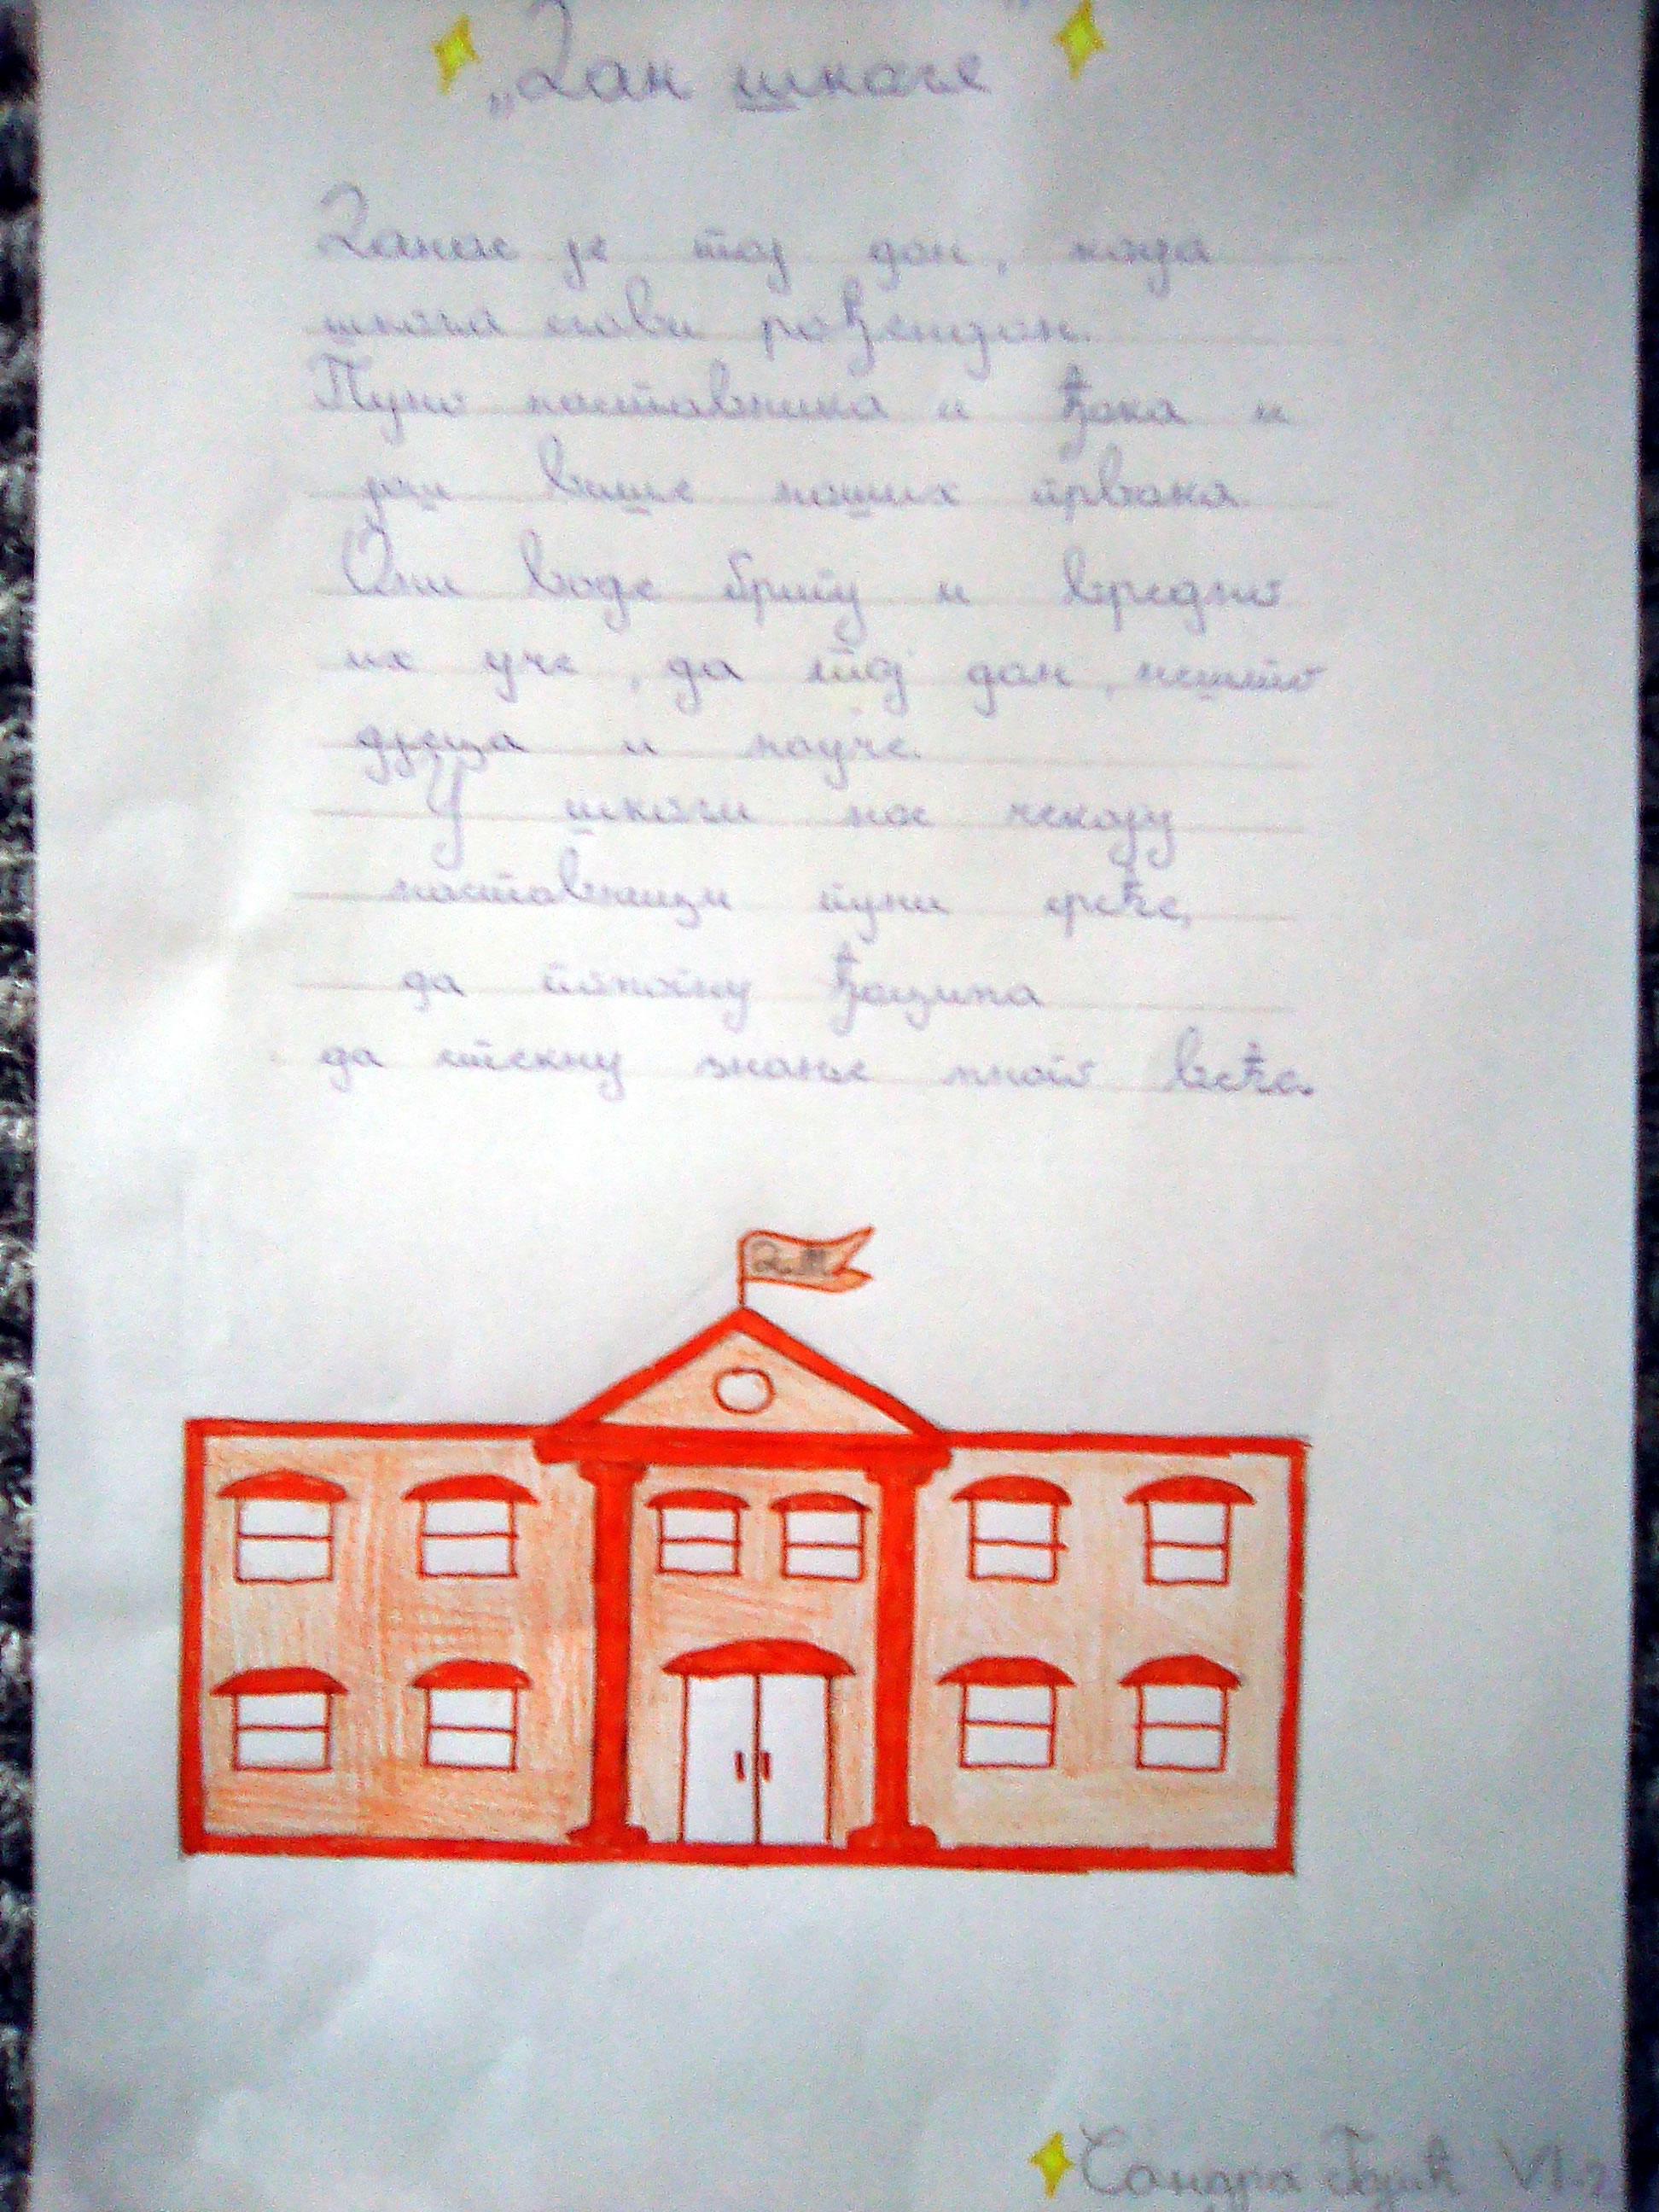 „Дан школе"
Данас је тај дан, када
школа слави рођендан.
Пуно наставника и ђака и
још више наших првака.
Они воде бригу и вредно
их уче, да тај дан, нешто
дјеца и науче.
У школи нас чекају
наставници пуни среће,
да помогну ђацима
да стекну знање много веће.
Сандра VI-2